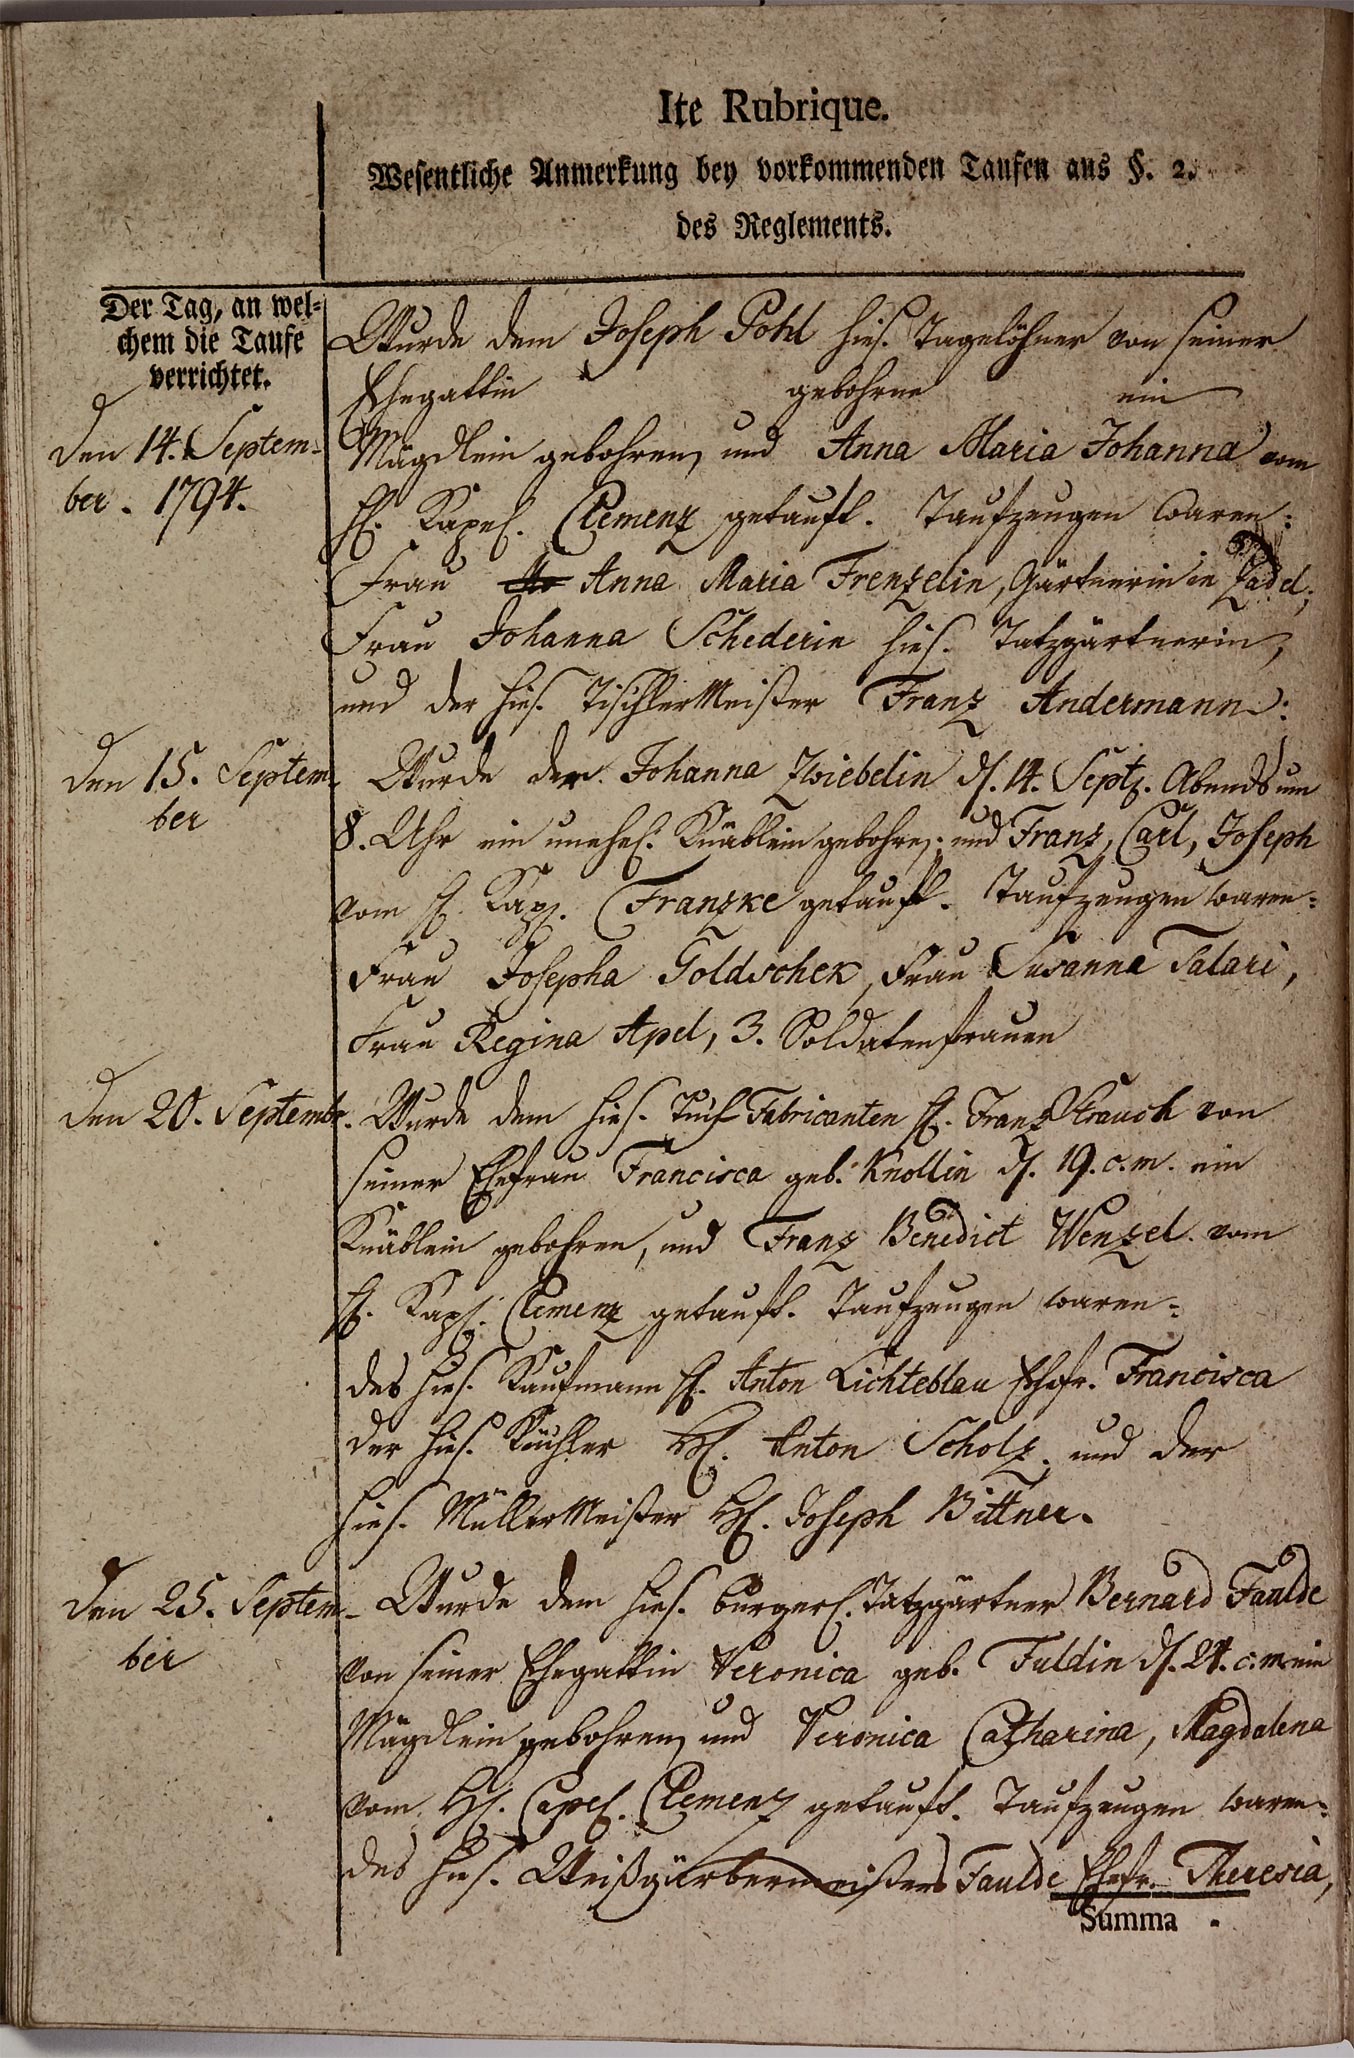 Ite Rubrique.
Wesentliche Anmerkung bey vorkommenden Taufen aus §. 2.
des Reglements.
Der Tag, an wel-
chem die Taufe
verrichtet.
Den 14. Septem-
ber. 1794.
Wurde dem Joseph Pohl hies. Tagelöhner von seiner
Ehegattin gebohrne ein
Mägdlein gebohren, und Anna Maria Johanna vom
H. Kapel. Clemenz getauft. Taufzeugen waren:
Frau Anna Maria Frenzelin, Gärtnerin in Zadel;
Frau Johanna Schederin hies. Tatzgärtnerin,
und der hies. TischlerMeister Franz Andermann.
Den 15. Septem-
ber
Wurde der Johanna Zwiebelin d. 14. Septr. Abends um
8. Uhr ein unehel. Knäblein gebohren; und Franz, Carl, Joseph
vom H. Kap. Franzke getauft. Taufzeugen waren:
Frau Josepha Goldschek, Frau Susanna Salari,
Frau Regina Apel, 3. Soldatenfrauen
Den 20. Septembr.
Wurde dem hies. Fabricanten H. Franz Strauch von
seiner Ehefrau Francisca geb. Knollin d. 19. c. m. ein
Knäblein gebohren, und Franz Benedict Wenzel vom
H. Kapl. Clemenz getauft. Taufzeugen waren:
des hies. Kaufmann H. Anton Lichteblau Ehefr. Francisca
der hies. H. Anton Scholz, und der
hies. MüllerMeister H. Joseph Bittner.
Den 25. Septem-
ber
Wurde dem hies. bürgerl. Tatzgärtner Bernard Faulde
von seiner Ehegattin Veronica geb. Fuldin d. 24. c. m. ein
Mägdlein gebohren, und Veronica Catharina, Magdalena
vom H. Capel. Clemenz getauft. Taufzeugen waren:
des hies. Weißgärbermeisters Faulde Ehefr. Theresia,
Summa .